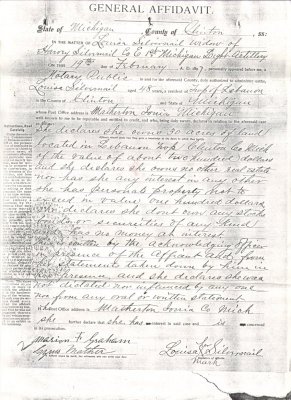 GENERAL AFFIDAVIT.
State of Michigan County of Clinton , ss:
IN THE MATTER OF Louisa Silvernail widow of
Silvernail Co E 14th Michigan Light Artillery
ON THIS 5th day of February A. D. personally appeared before me, a
Notary Public in and for the aforesaid County, duly authorized to administer oaths,
Louisa Silvernail aged 48 years, a resident of Twp of Lebanon
in the County of Clinton and State of Michigan
whose Post Office address is Matherton Ionia Michigan
well known to me to be reputable and entitled to credit, and who, being duly sworn, declared in relation to the aforesaid case
as follows:
declares she owns 30 acres of land
located in Lebanon Twp Clinton Co Mich
of the value of about two hundred dollars
and declares she owns no other real estate
nor has she any interest in any other
she has personal property not to
exceed in value one hundred dollars
she declares she dont own any stocks
securities of any kind
has no money at interest
written by the acknowledging officer
in presence of the affiant and from
statements taken down by him in
presence and she declares she was
not dictated nor influenced by any one
nor from any oral or written statement
Post Office address is Matherton Ionia Co Mich
she further declare that she has no interest in said case and is not concerned
in its prosecution.
Marion F. Graham
Cyrus Mather
Louisa X Silvernail
mark